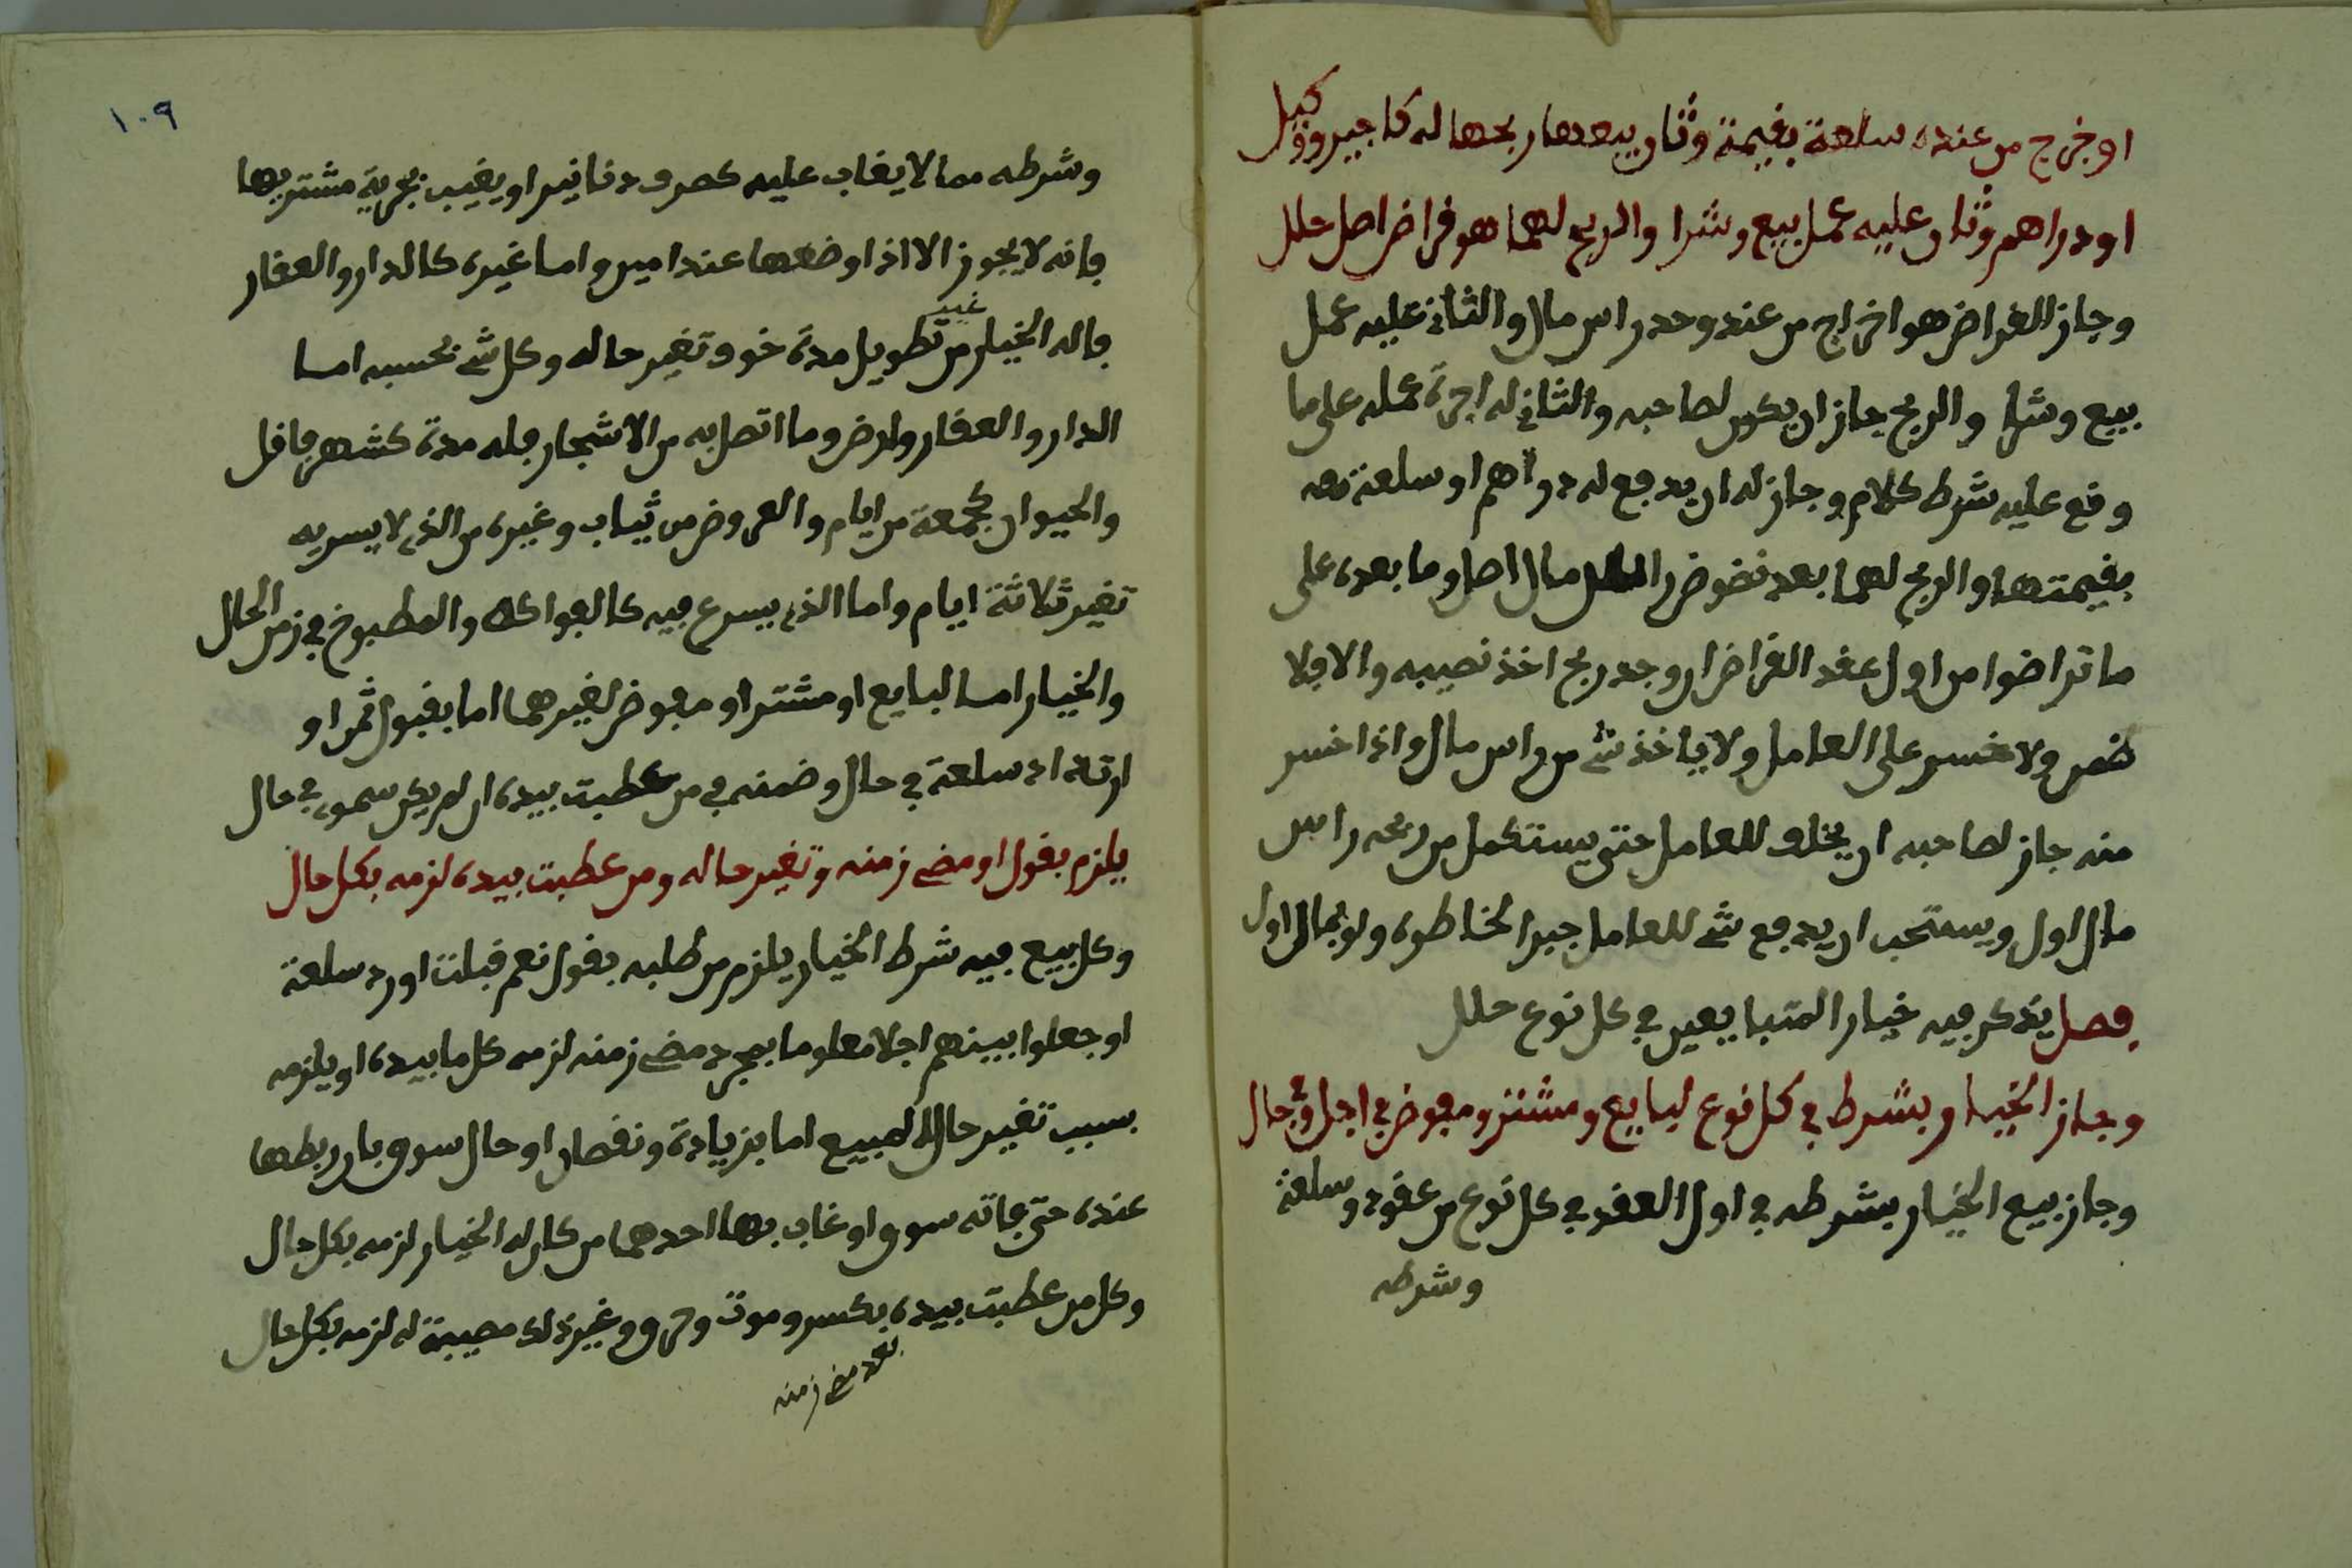 او خرج من عنده سلعة بقيمة وثان يبيعها ربحها له كاجير ووكيل
او دراهم وثان عليه عمل بيع وشرا والربح لهما هو قراض اصل حلل
وجاز القراض هو اخراج من عند وحد راس مال والثاني عليه عمل
بيع وشرا والربح جاز ان يكون لصاحبه والثاني له اجرة عمله على ما
وقع عليه شرط كلام وجاز له ان يدفع له دراهم او سلعة
بقيمتها والربح لهما بعد نضوض مال اصل وما بعده على
ما تراضوا من اول عقد القراض ان وجد ربح اخذ نصيبه والا فلا
ولا خسر على العامل ولا ياخذ شي من راس مال واذا خسر
منه جاز لصاحبه ان يخلف للعامل حتى يستكمل من ربحه راس
مال اول ويستحب ان يدفع شي للعامل جبرا لخاطره ولو بمال اول
فصل يذكر فيه خيار المتبايعين في كل نوع حلل
وجاز الخيار بشرط في كل نوع لبايع ومشتر ومفوض في اجل وفي حال
وجاز بيع الخيار بشرطه في اول العقد في كل نوع من عقود وسلعة
وشرطه
١٠٩
وشرطه مما لا يغاب عليه كصرف دنانير او يغيب بجرية مشتر بها
فانه لا يجوز الا اذا وضعها عند امين واما غيره كالدار والعقار
فله الخيار من غير تطويل مدة خوف تغير حاله وكل شي بحسبه اما
الدار والعقار ولرض وما اتصل به من الاشجار فله مدة كشهر فاقل
والحيوان كجمعة من ايام والعروض من ثياب وغيره من الذي لا يسر به
تغير ثلاثة ايام واما الذي يسرع فيه كالفواكه والمطبوخ في زمن الحال
والخيار اما لبايع او مشتر او مفوض لغيرهما اما بقبول ثمن او
سلعة في حال وضمنه في من عطبت بيده ان لم يكن سموي في حال
يلزم بقول او مضي زمنه وتغير حاله ومن عطبت بيده لزمه بكل حال
وكل بيع فيه شرط الخيار يلزم من طلبه بقول نعم قبلت او رد سلعة
او جعلوا بينهم اجلا معلوما بمجرد مضي زمنه لزمه كل ما بيده او يلزمه
بسبب تغير حال المبيع اما بزيادة ونقصان او حال سوق بان ربطها
عنده حتى فاته سوق او غاب بها احدهما من كان له الخيار لزمه بكل حال
وكل من عطبت بيده بكسر وموت وحرق وغير ذلك مصيبة له لزمه بكل حال
بعد مضي زمنه